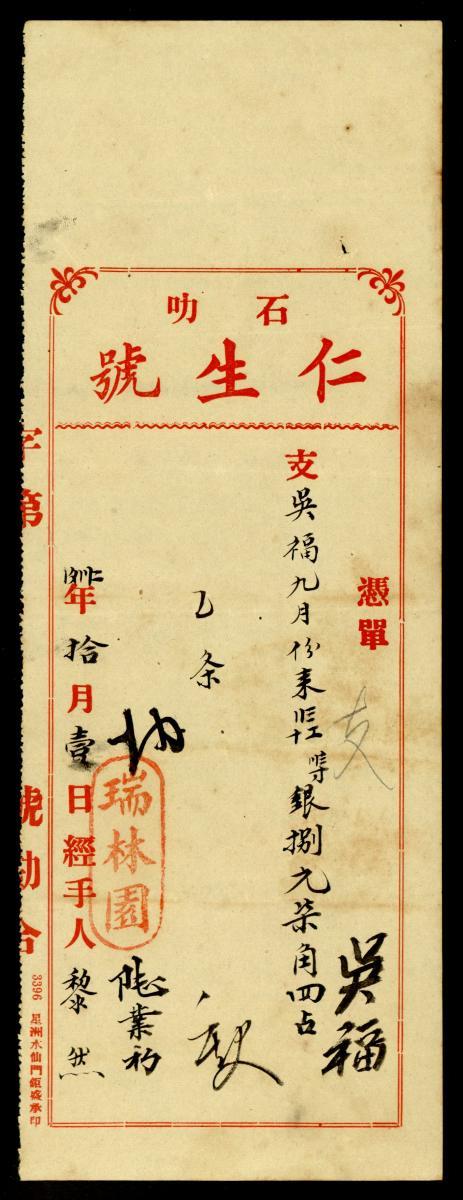 石叻
仁生號
憑單
支
吳福
支吳福九月份来
銀捌元柒角四占
乙条
瑞林園
年拾月壹日經手人黎然
字第
號勘合
3396 星洲水仙門鉅盛承印